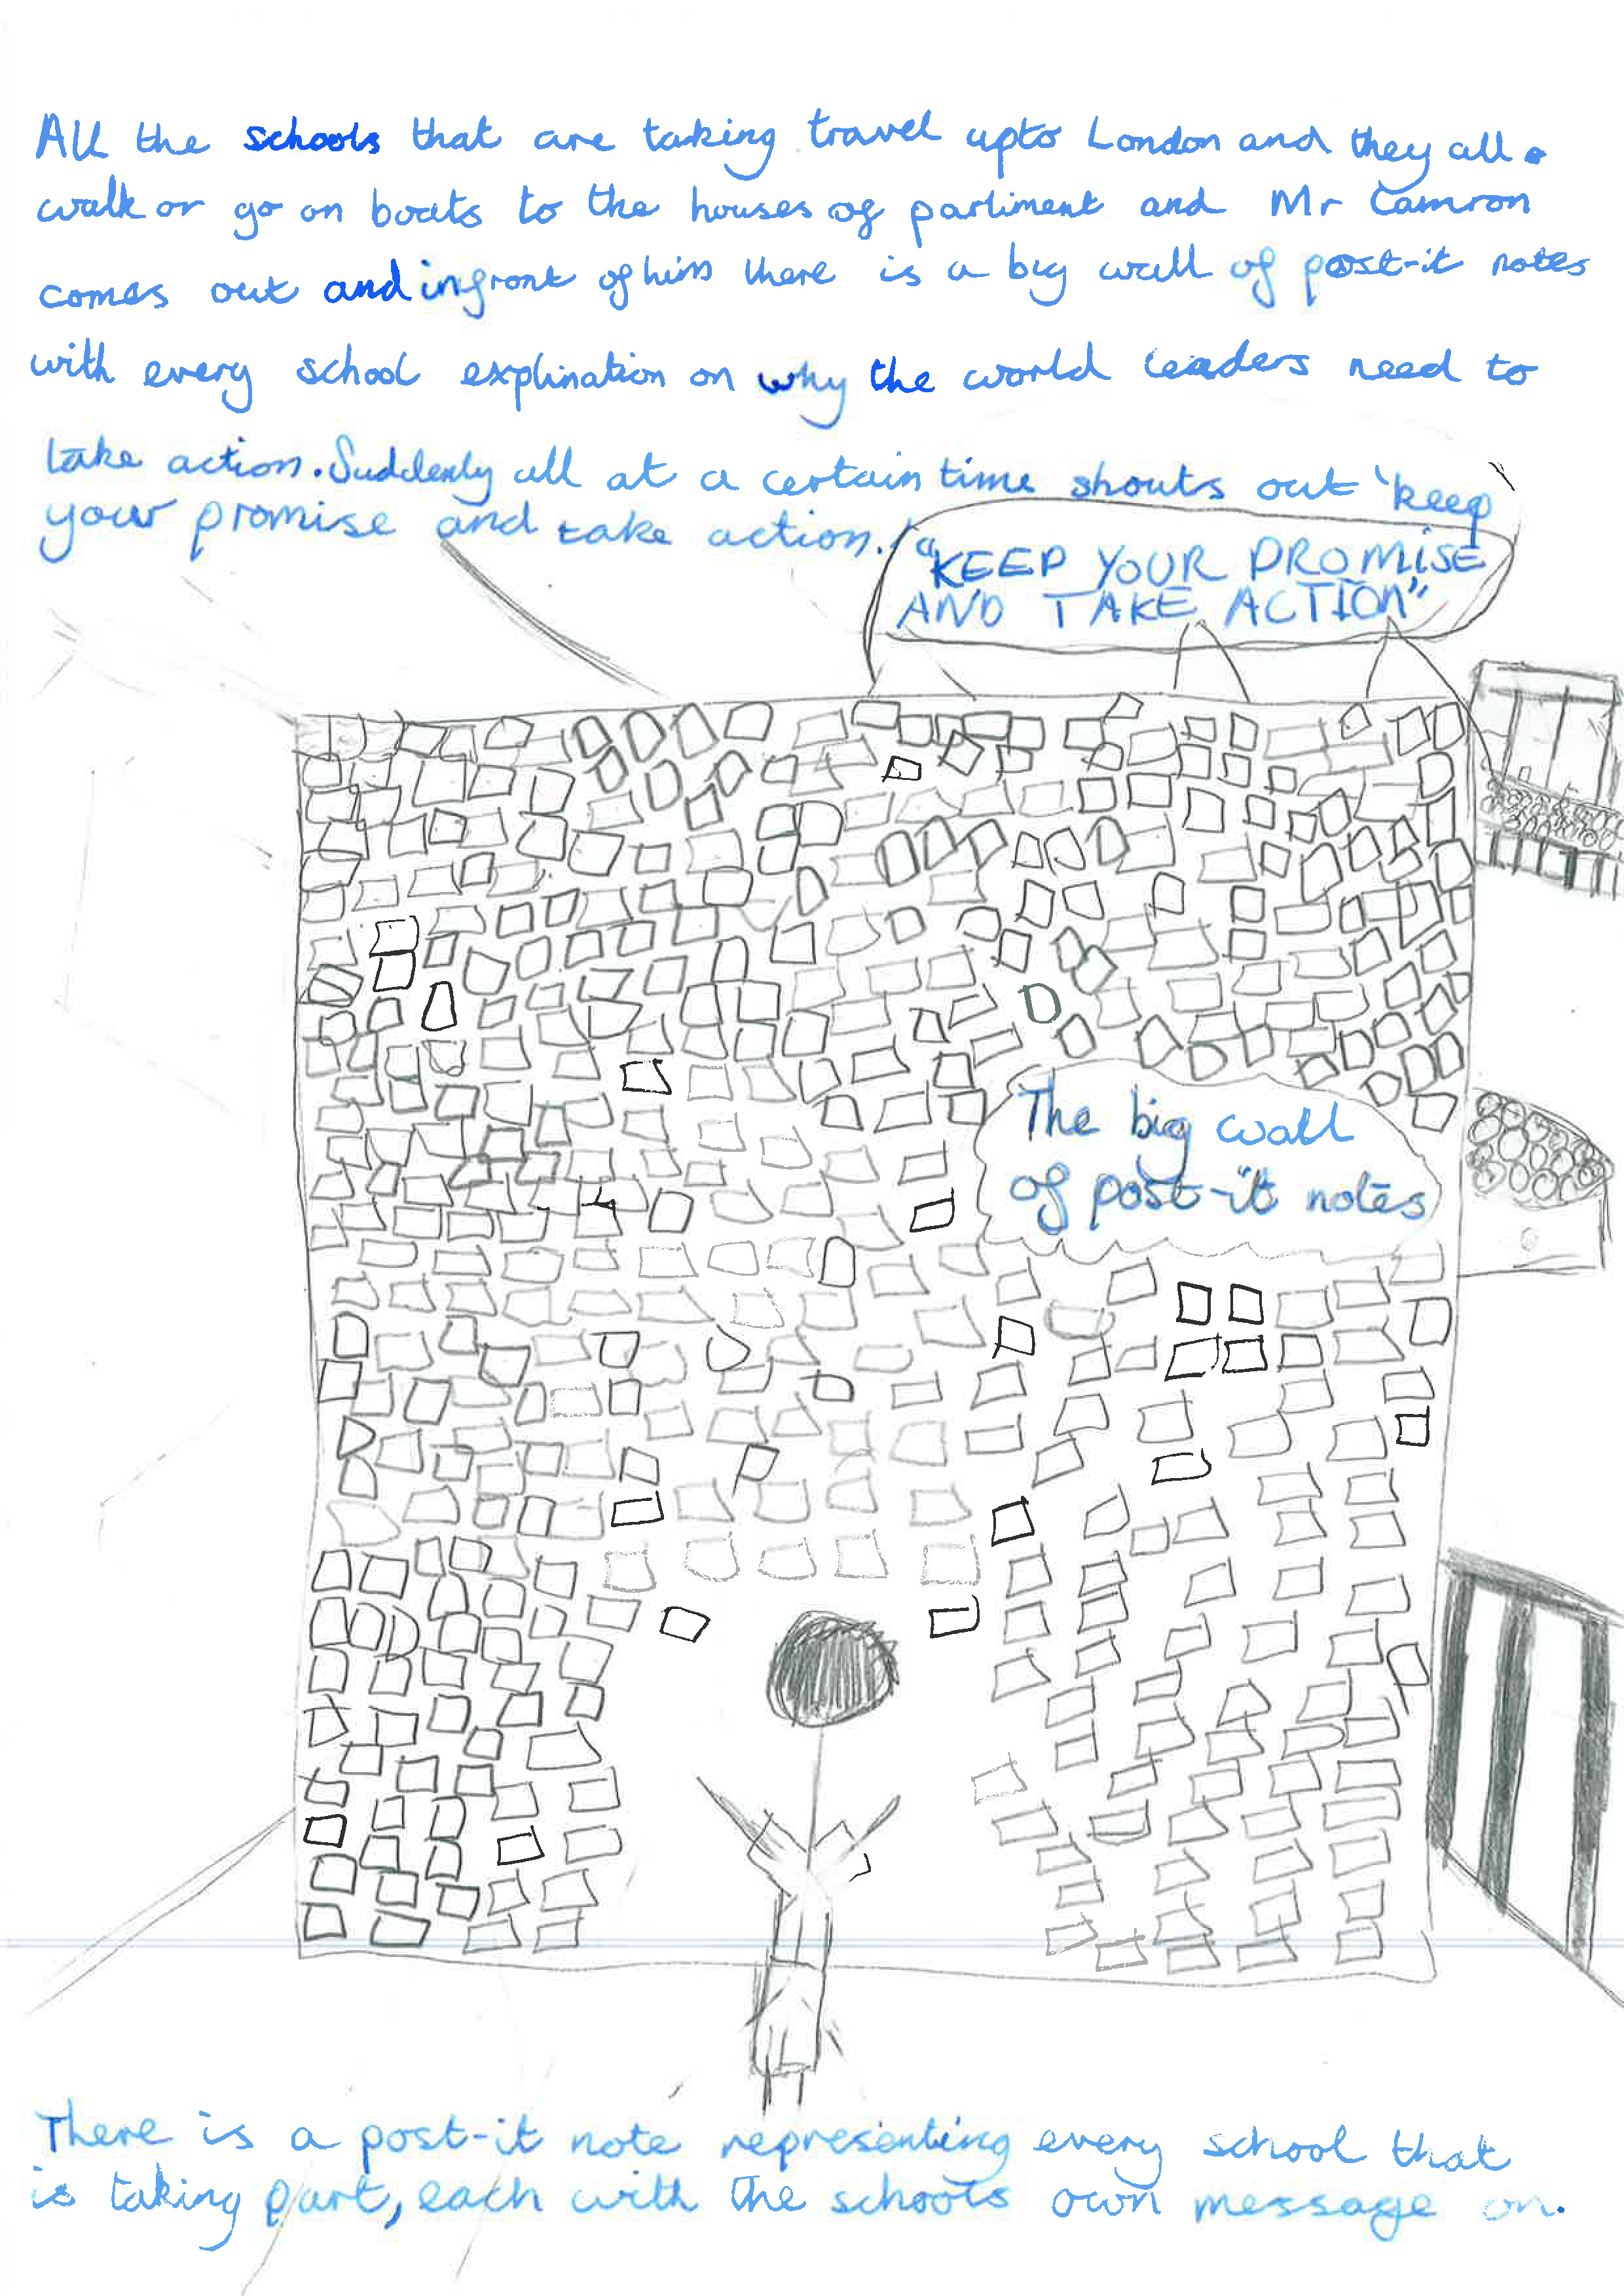 All the schools that are taking travel upto London and they all
walk or go on boats to the houses of parliment and Mr Camron
comes out and infront of him there is a big wall of post-it notes
with every school explination on why the world leaders need to
take action. Suddenly all at a certain time shouts out 'keep
your promise and take action.'
"KEEP YOUR PROMISE
AND TAKE ACTION"
The big wall
of post-it notes
There is a post-it note representing every school that
is taking part, each with the schools own message on.